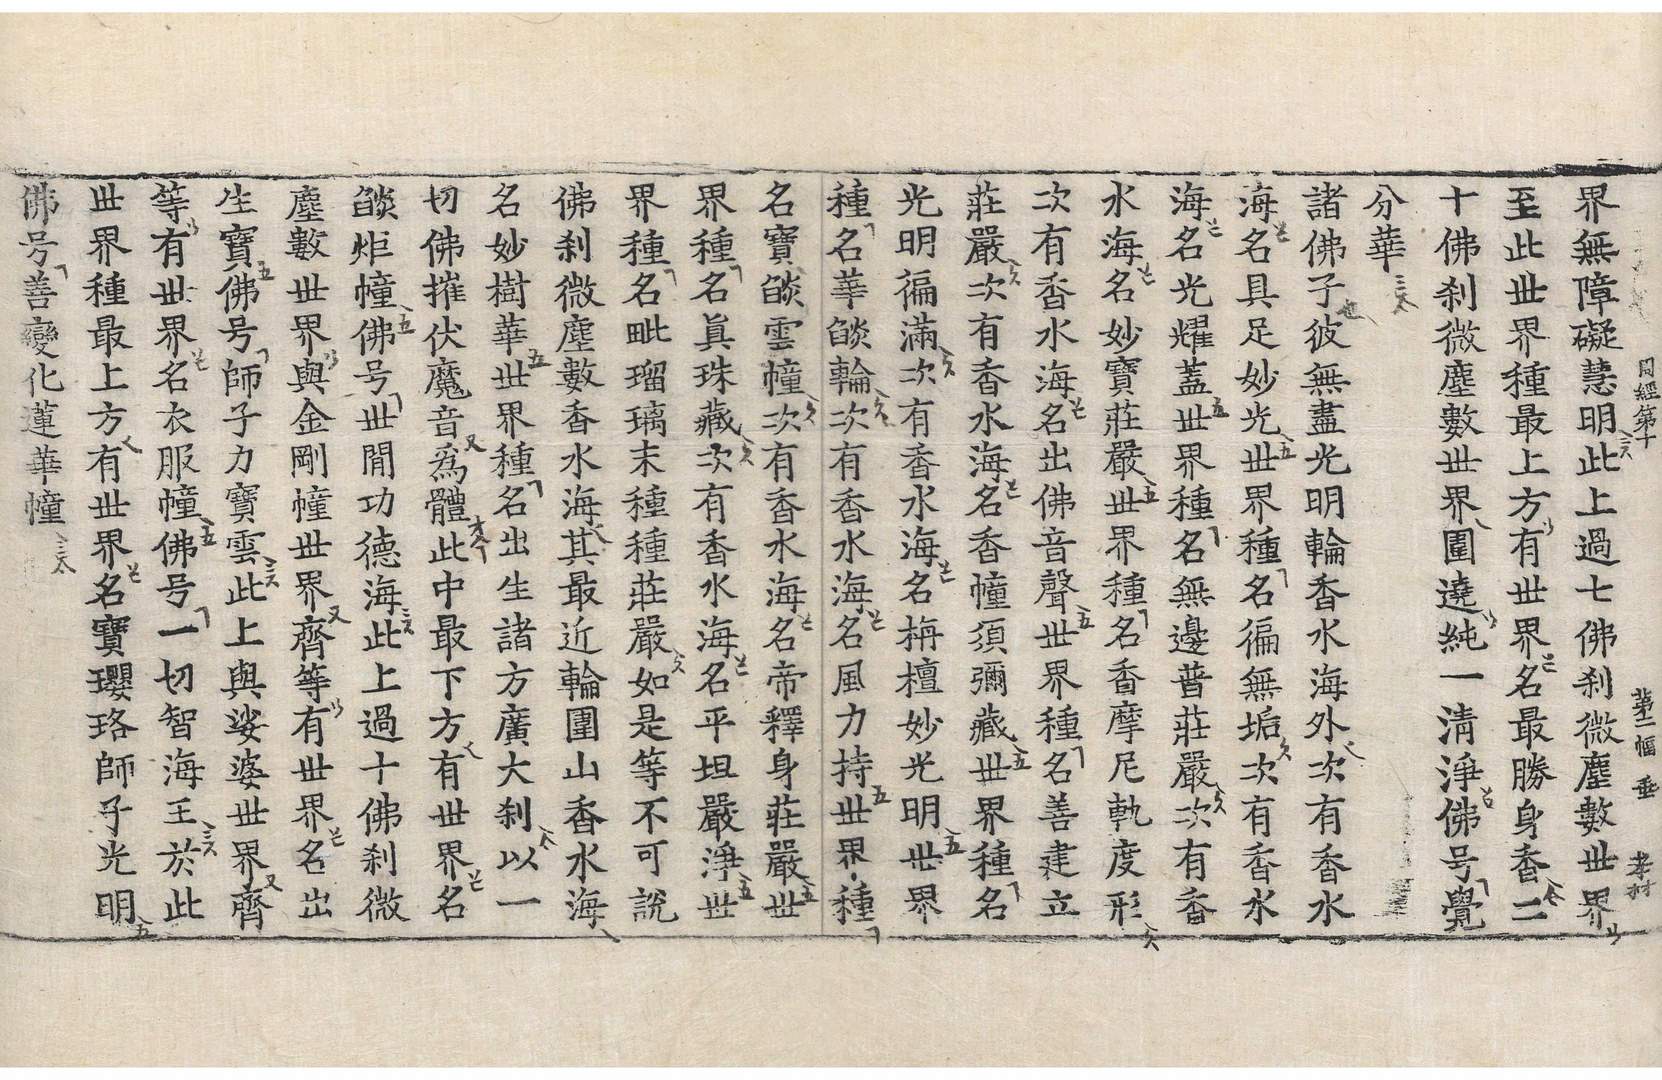 界無障礙慧明此上過七佛刹微塵數世界
至此世界種最上方有世界名最勝身香二
十佛刹微塵數世界圍遶純一淸淨佛号覺
分華
諸佛子彼無盡光明輪香水海外次有香水
海名具足妙光世界種名徧無垢次有香水
海名光耀蓋世界種名無邊普莊嚴次有香
水海名妙寶莊嚴世界種名香摩尼軌度形
次有香水海名出佛音聲世界種名善建立
莊嚴次有香水海名香幢須彌藏世界種名
光明徧滿次有香水海名栴檀妙光明世界
種名華燄輪次有香水海名風力持世界種
名寶燄雲幢次有香水海名帝釋身莊嚴世
界種名眞珠藏次有香水海名平坦嚴淨世
界種名毗瑠璃末種種莊嚴如是等不可說
佛刹微塵數香水海其最近輪圍山香水海
名妙樹華世界種名出生諸方廣大刹以一
切佛摧伏魔音爲體此中最下方有世界名
燄炬幢佛号世閒功德海此上過十佛刹微
塵數世界與金剛幢世界齊等有世界名出
生寶佛号師子力寶雲此上與娑婆世界齊
等有世界名衣服幢佛号一切智海王於此
世界種最上方有世界名寶瓔珞師子光明
佛号善變化蓮華幢
同經第十
第二幅
垂
孝材